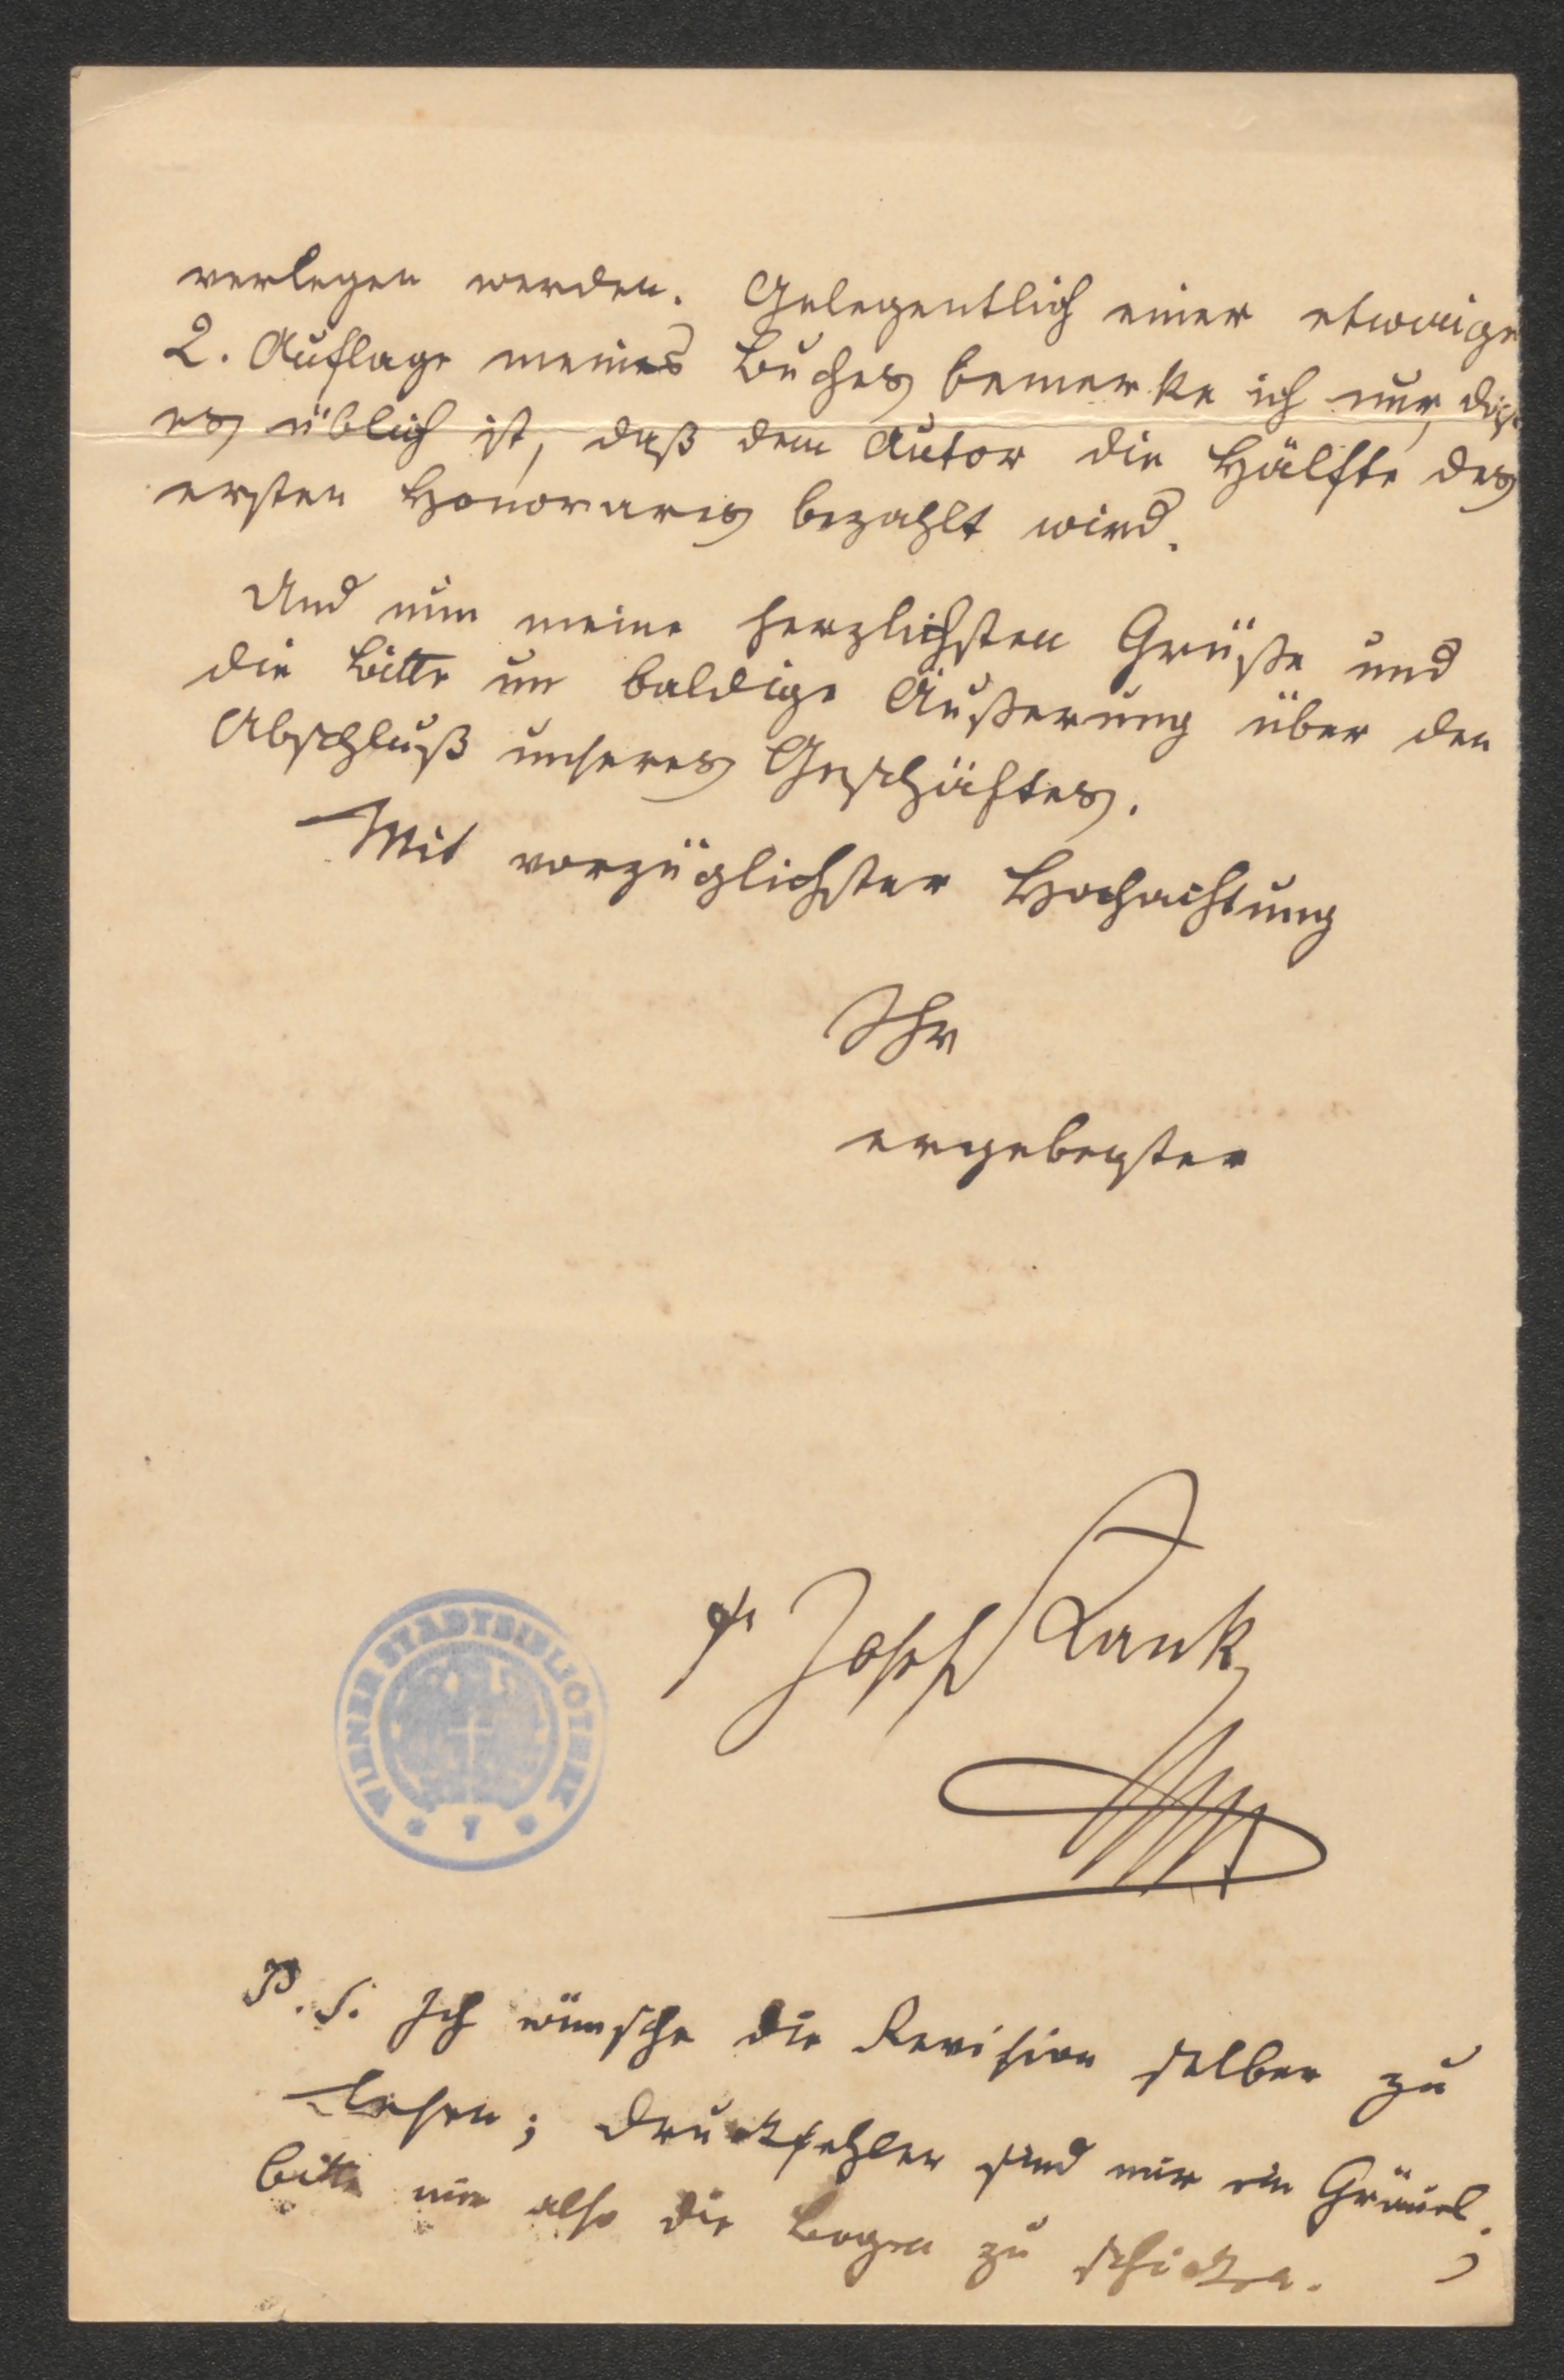 verlegen werden. Gelegentlich einer etwaigen
2. Auflage meines Buches bemerke ich nur, daß
es üblich ist, daß dem Autor die Hälfte des
ersten Honorares bezahlt wird.
Und nun meine herzlichsten Grüße und
die Bitte um baldige Äußerung über den
Abschluß unseres Geschäftes.
Mit vorzüglichster Hochachtung
Ihr
ergebenster
Dr Josef Rank
WIENER STADTBIBLIOTHEK
* 7 *
P.S. Ich wünsche die Revision selber zu
lesen; Druckfehler sind mir ein Gräuel;
bitte mir also die Bogen zu schicken.